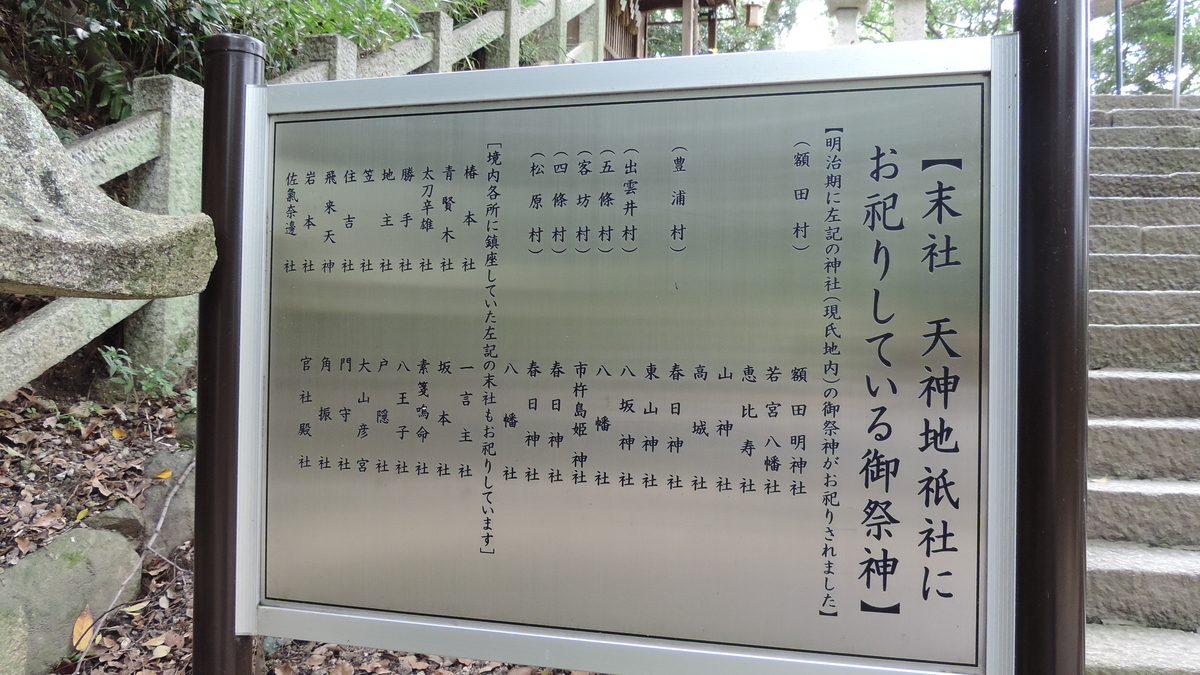 【末社 天神地祇社に
お祀りしている御祭神】
【明治期に左記の神社(現氏地内)の御祭神がお祀りされました】
(額田村) 額田明神社
若宮八幡社
恵比寿社
山神社
高城社
(豊浦村) 春日神社
東山神社
(出雲井村) 八坂神社
(五條村) 八幡社
(客坊村) 市杵島姫神社
(四條村) 春日神社
(松原村) 春日神社
八幡社
[境内各所に鎮座していた左記の末社もお祀りしています]
椿本社 一言主社
青賢木社 坂本社
太刀辛雄社 素箋嗚命社
勝手社 八王子社
地主社 戸隠社
笠社 大山彦宮
住吉社 門守社
飛来天神 角振社
岩本社 官社殿社
佐氣奈邊社